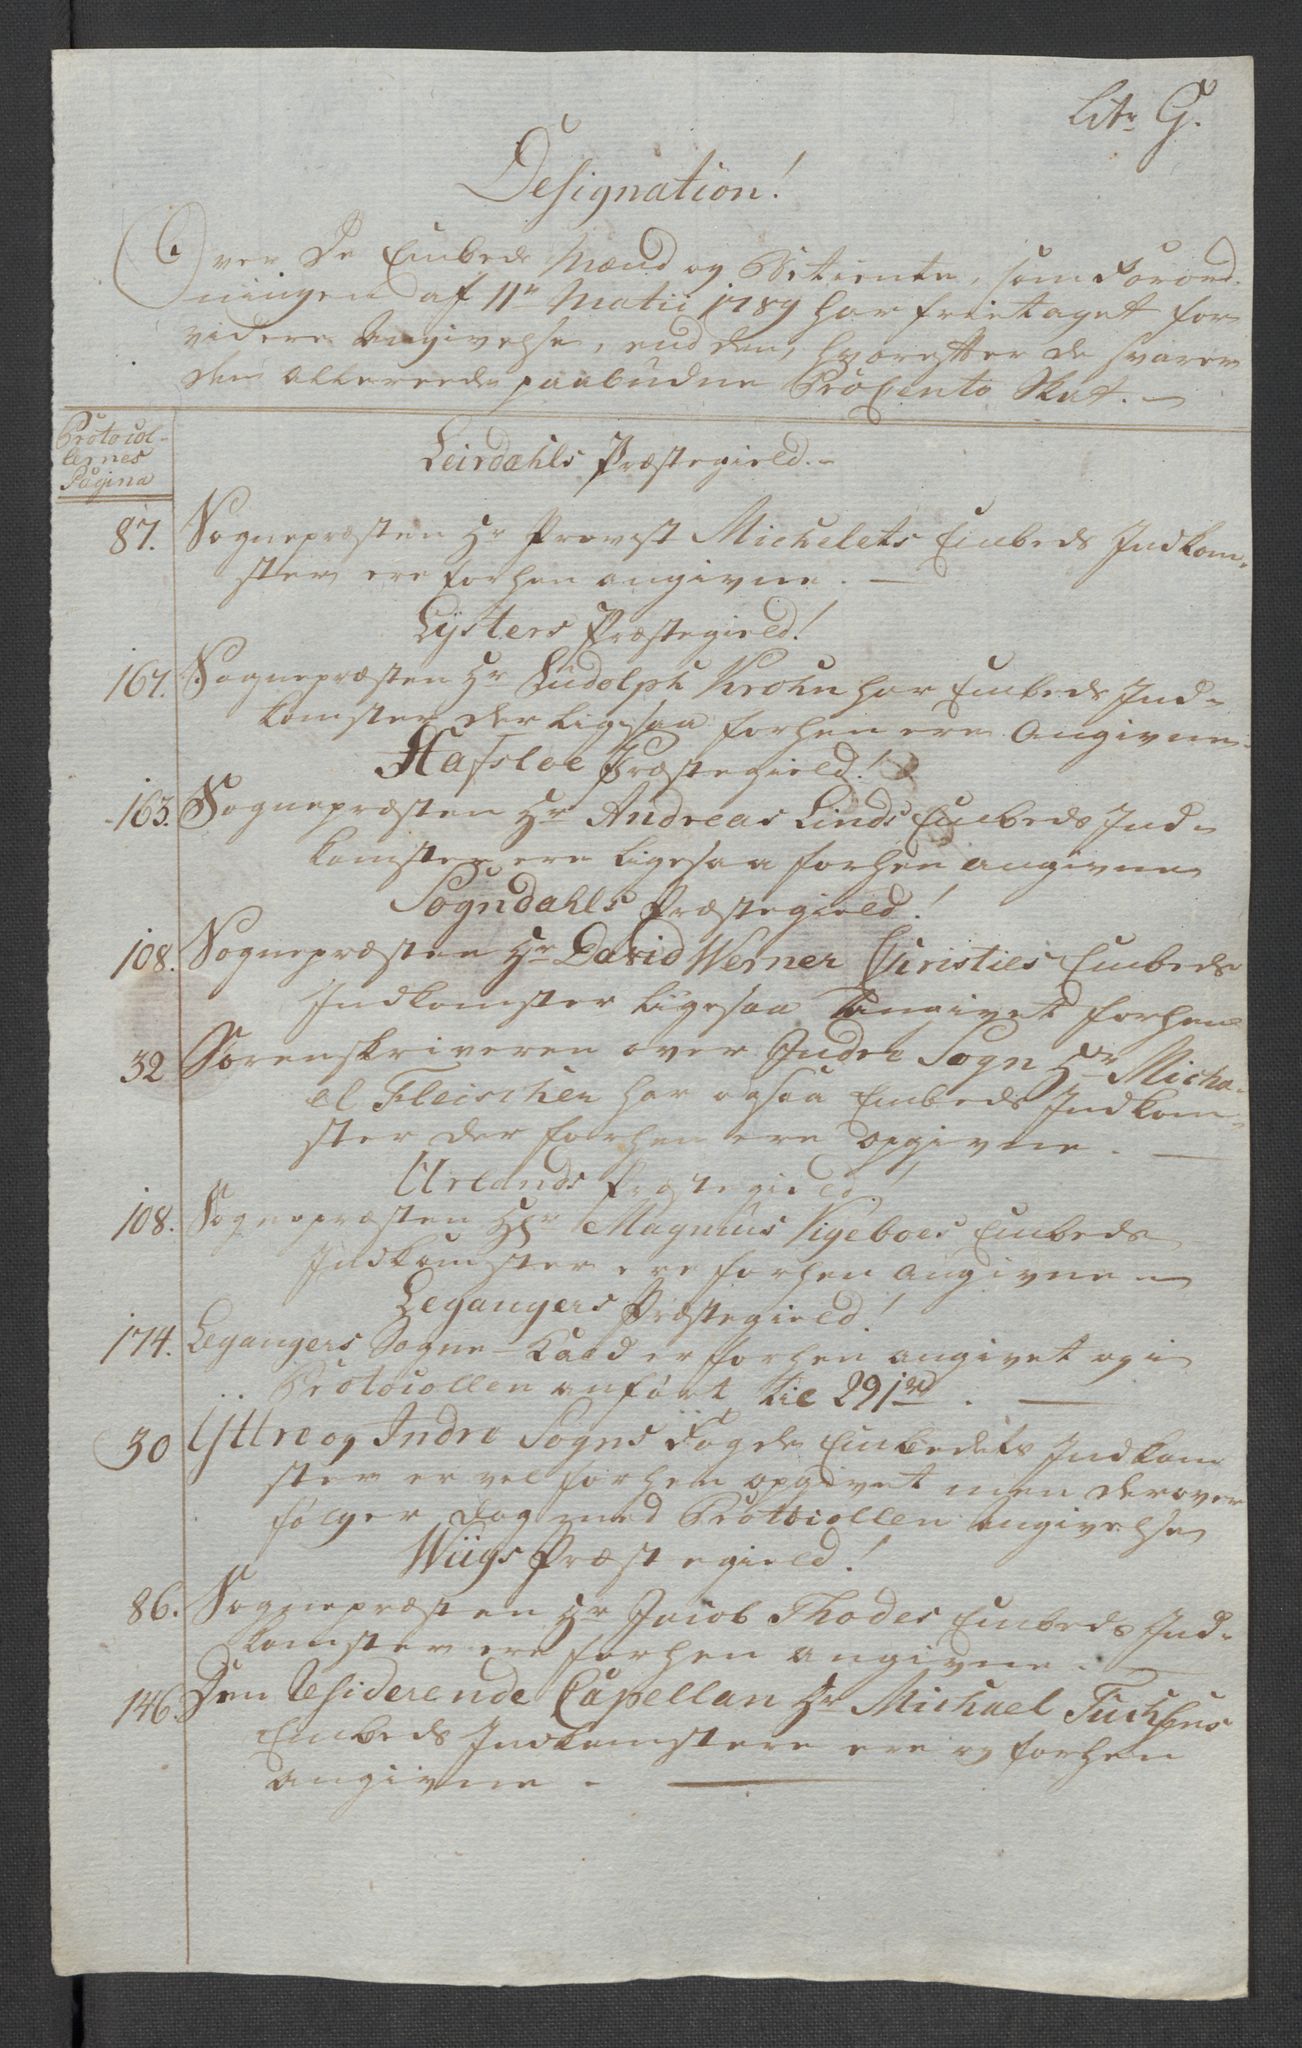 Litr G.
Designation!
Over De Embeds Mænd og Betiente, som Forord-
ningen af 11te Matii 1789 har frietaget for
videre Angivelse, end den, hvorefter de svarer
den allereede paabudne Procento Skat. -
Protocol-
lernes
Pagina
Leirdahls Præstegield. -
87. Sognepræsten Hr Provst Michelets Embeds Indkom-
ster ere forhen angivne. -
Lysters Præstegield!
167. Sognepræsten Hr Ludolph Krohn har Embeds Ind-
komster der ligesaa forhen ere Angivne -
Hafsloe Præstegield!
163. Sognepræsten Hr Andreas Linds Embeds Ind-
komster ere ligesaa forhen angivne
Sogndahls Præstegield!
108. Sognepræsten Hr David Werner Christies Embeds
Indkomster ligesaa angivet forhen
32 Sorenskriveren over Indre Sogn Hr Micha-
el Fleischer har ogsaa Embeds Indkom-
ster der forhen ere opgivne. -
Urlands Præstegield!
108. Sognepræsten Hr Magnus Vigeboes Embeds
Indkomster ere forhen angivne -
Legangers Præstegield!
174. Legangers Sogne-Kald er forhen angivet og i
Protocollen anført til 291 rd. -
30 Yttre og Indre Sogns Fogde Embedets Indkom
ster er vel forhen opgivet men derover
følger dog med Protocollen Angivelse
Wiigs Præstegield!
86. Sognepræsten Hr Jacob Thodes Embeds Ind-
komster ere forhen angivne. -
146. Den Residerende Capellan Hr Michael Fuchsus
Embeds Indkomstere ere og forhen
angivne -